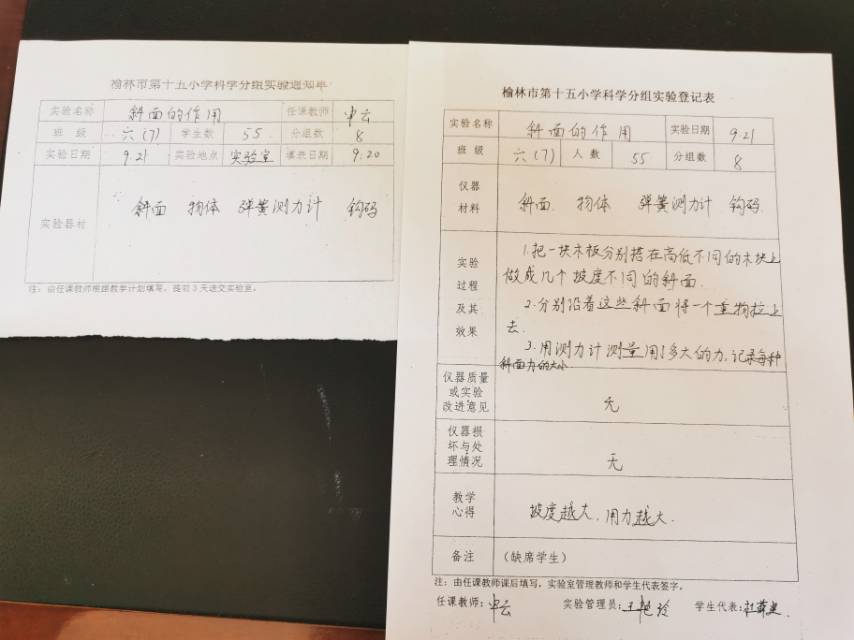 榆林市第十五小学科学分组实验通知单
实验名称 斜面的作用 任课教师 申云
班 级 六(7) 学生数 55 分组数 8
实验日期 9.21 实验地点 实验室 填表日期 9.20
实验器材 斜面 物体 弹簧测力计 钩码
注：由任课教师根据教学计划填写，提前3天送交实验室。
榆林市第十五小学科学分组实验登记表
实验名称 斜面的作用 实验日期 9.21
班 级 六(7) 人 数 55 分组数 8
仪器
材料
斜面 物体 弹簧测力计 钩码
实验
过程
及其
效果
1.把一块木板分别搭在高低不同的木块上
做成几个坡度不同的斜面
2.分别沿着这些斜面将一个重物拉上
去.
3.用测力计测量用了多大的力,记录每种
斜面力的大小
仪器质量
或实验
改进意见
无
仪器损
坏与处
理情况
无
教学
心得
坡度越大、用力越大.
备注 (缺席学生)
注：由任课教师课后填写，实验室管理教师和学生代表签字。
任课教师：申云 实验管理员：王艳玲 学生代表：